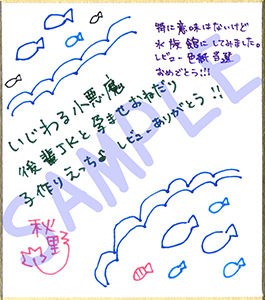 特に意味はないけど
水族館にしてみました。
レビュー色紙当選
おめでとう!!!
いじわる小悪魔
後輩JKと孕ませおねだり
子作りえっち♪ レビューありがとう!!
SAMPLE